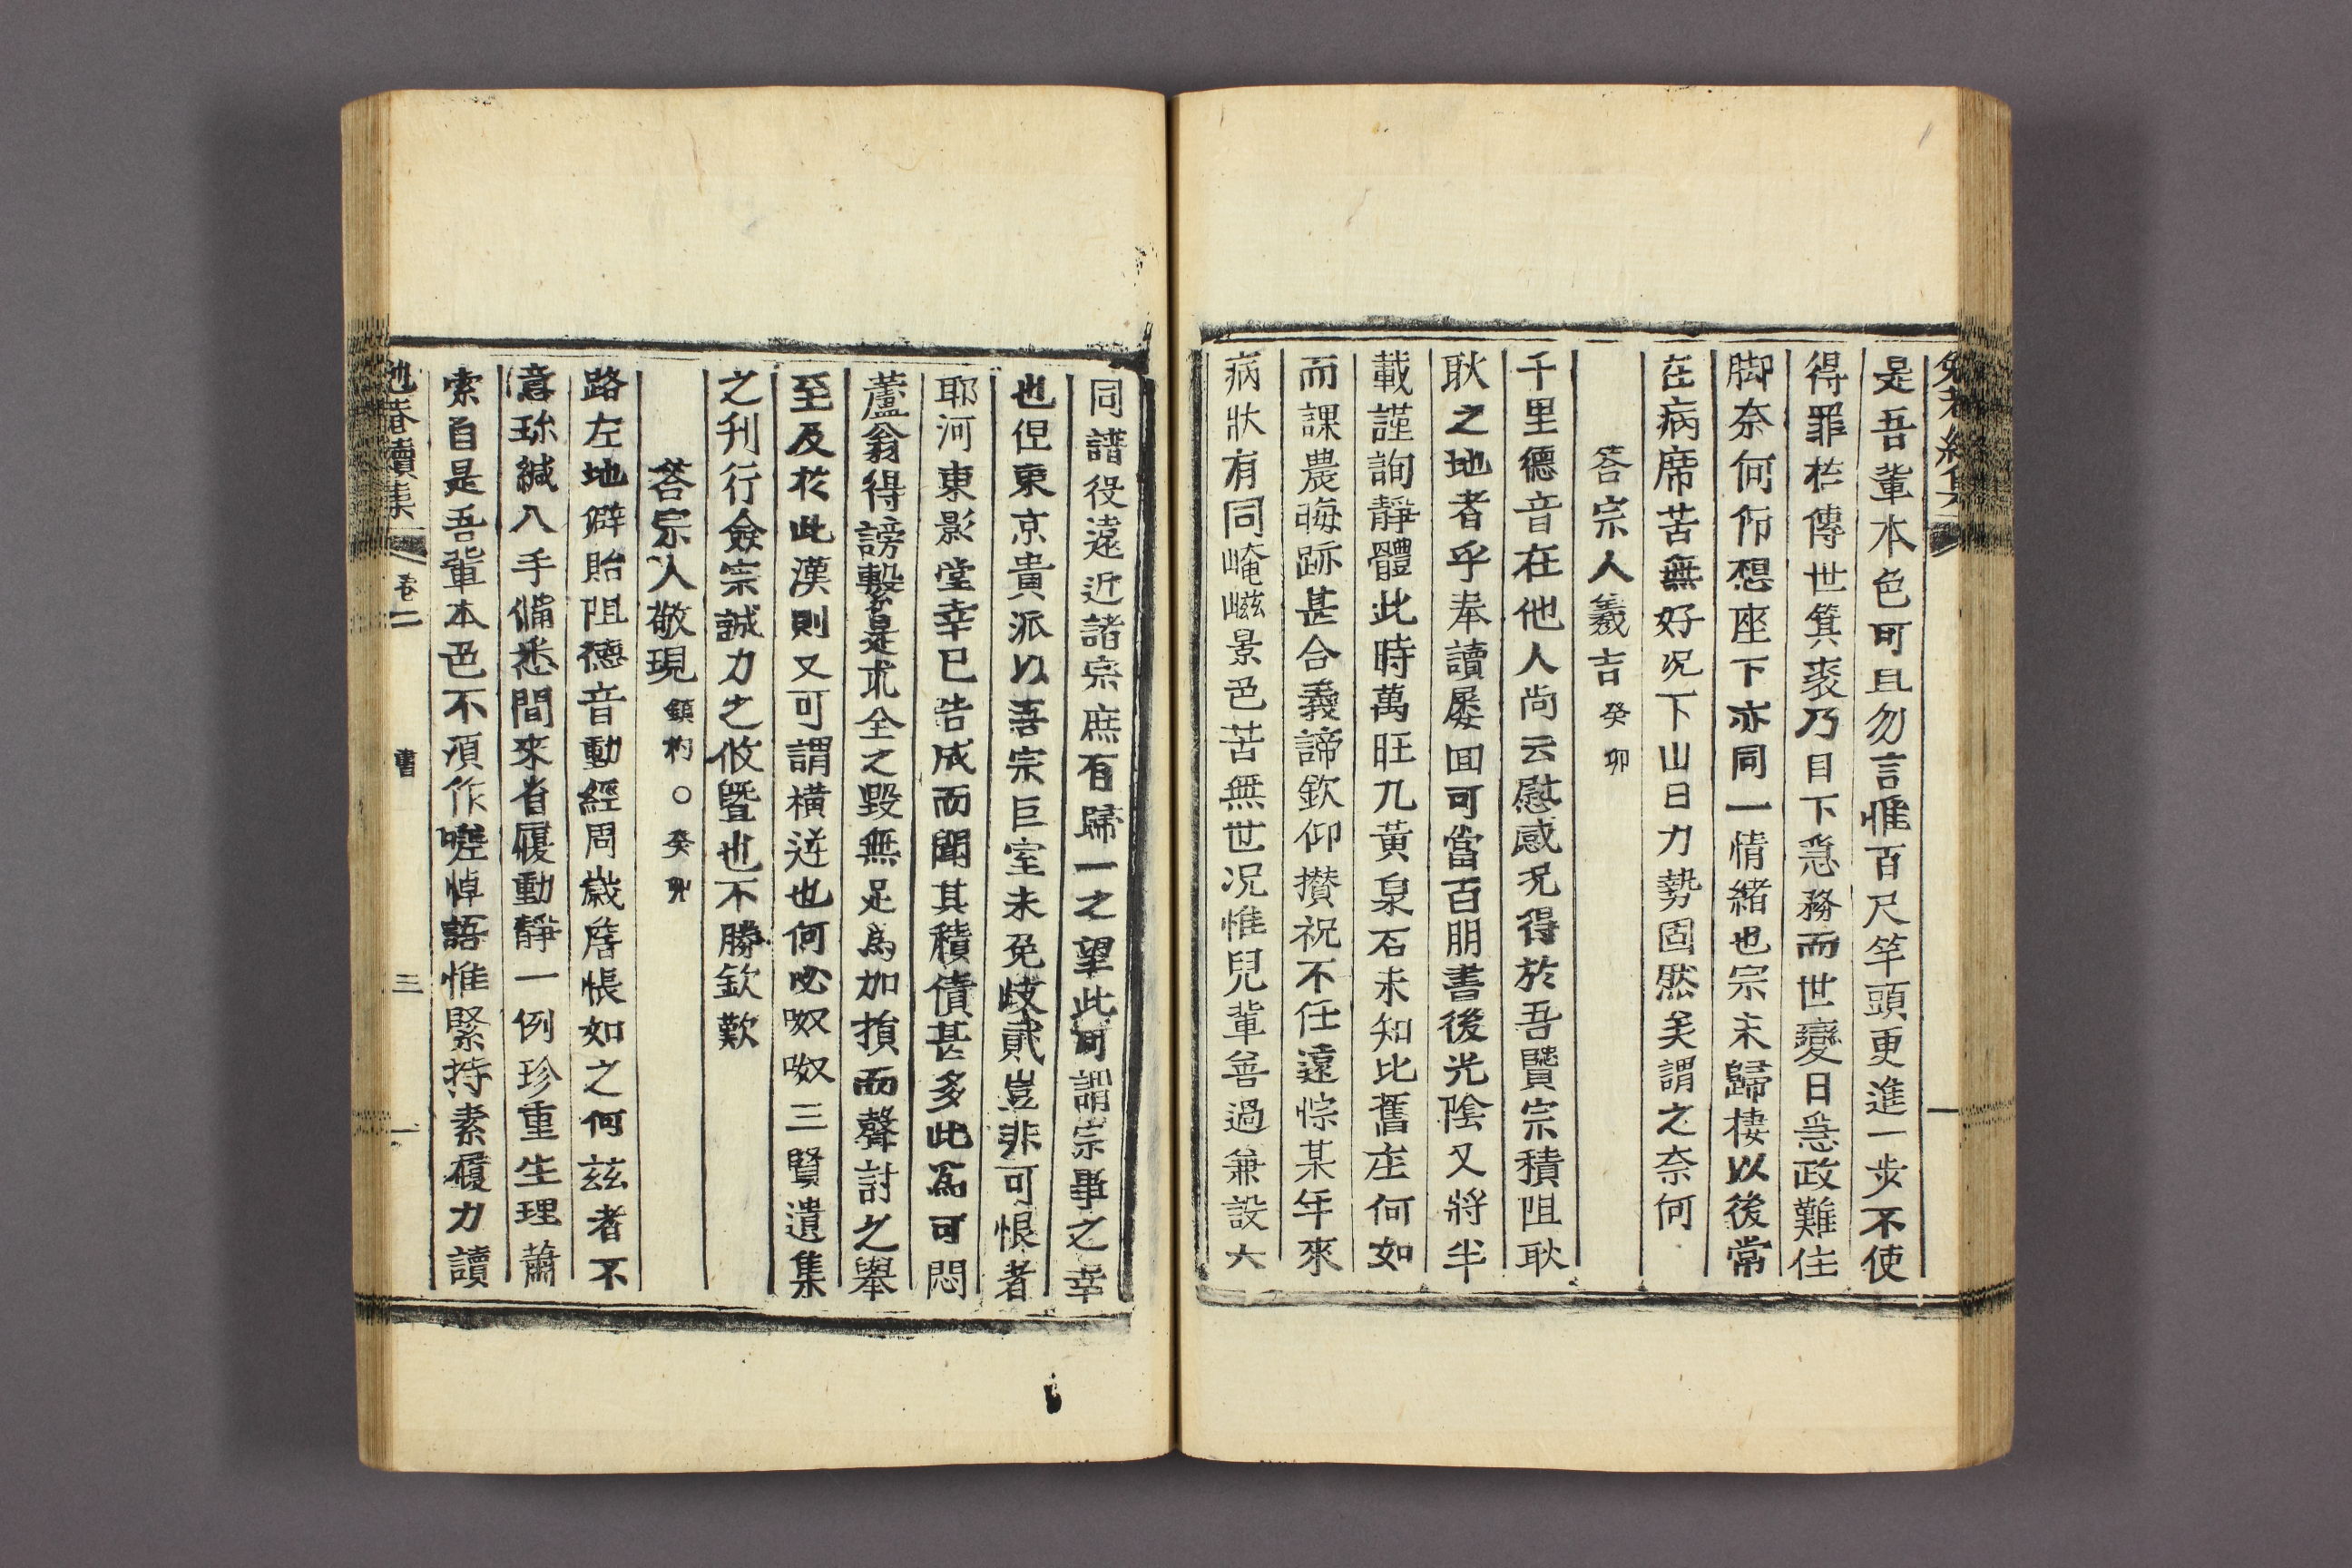 是吾輩本色可且勿言惟百尺竿頭更進一步不使
得罪於傳世箕裘乃目下急務而世變日急政難住
脚奈何仰想座下亦同一情緒也宗末歸棲以後常
在病席苦無好况下山日力勢固然矣謂之奈何
答宗人羲吉 癸卯
千里德音在他人尚云慰感况得於吾賢宗積阻耿
耿之地者乎奉讀屢回可當百朋書後光陰又將半
載謹詢靜體此時萬旺九黃泉石未知比舊庄何如
而課農晦跡甚合義諦欽仰攅祝不任遠悰某年來
病狀有同崦嵫景色苦無世况惟兒輩善過兼設六
同譜役遠近諸宗庶有歸一之望此可謂宗事之幸
也但東京貴派以吾宗巨室未免歧貳豈非可恨者
耶河東影堂幸已告成而聞其積債甚多此爲可悶
蘆翁得謗繫是求全之毁無足爲加損而聲討之擧
至及於此漢則又可謂橫逆也何必呶呶三賢遺集
之刊行僉宗誠力之攸曁也不勝欽歎
答宗人敬現 鎭杓○癸卯
路左地僻貽阻德音動經周歲詹悵如之何玆者不
意珎緘入手備悉間來省履動靜一例珍重生理蕭
索自是吾輩本色不須作嗟悼語惟緊持素履力讀
勉菴續集 卷二 書 三